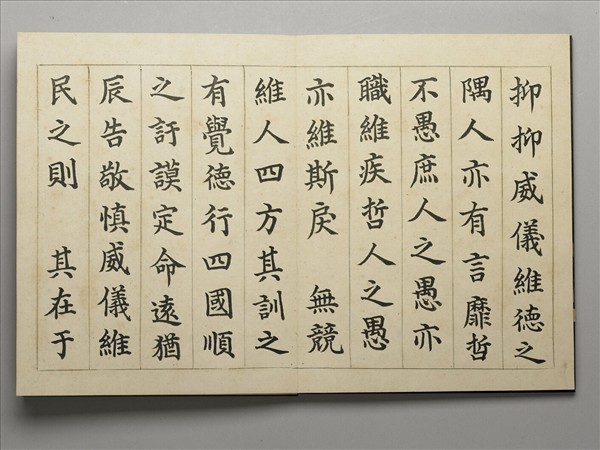 抑抑威儀維德之
隅人亦有言靡哲
不愚庶人之愚亦
職維疾哲人之愚
亦維斯戾　無競
維人四方其訓之
有覺德行四國順
之訏謨定命遠猶
辰告敬慎威儀維
民之則　其在于